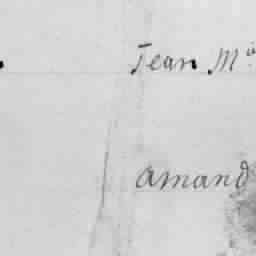 Jean M
amand